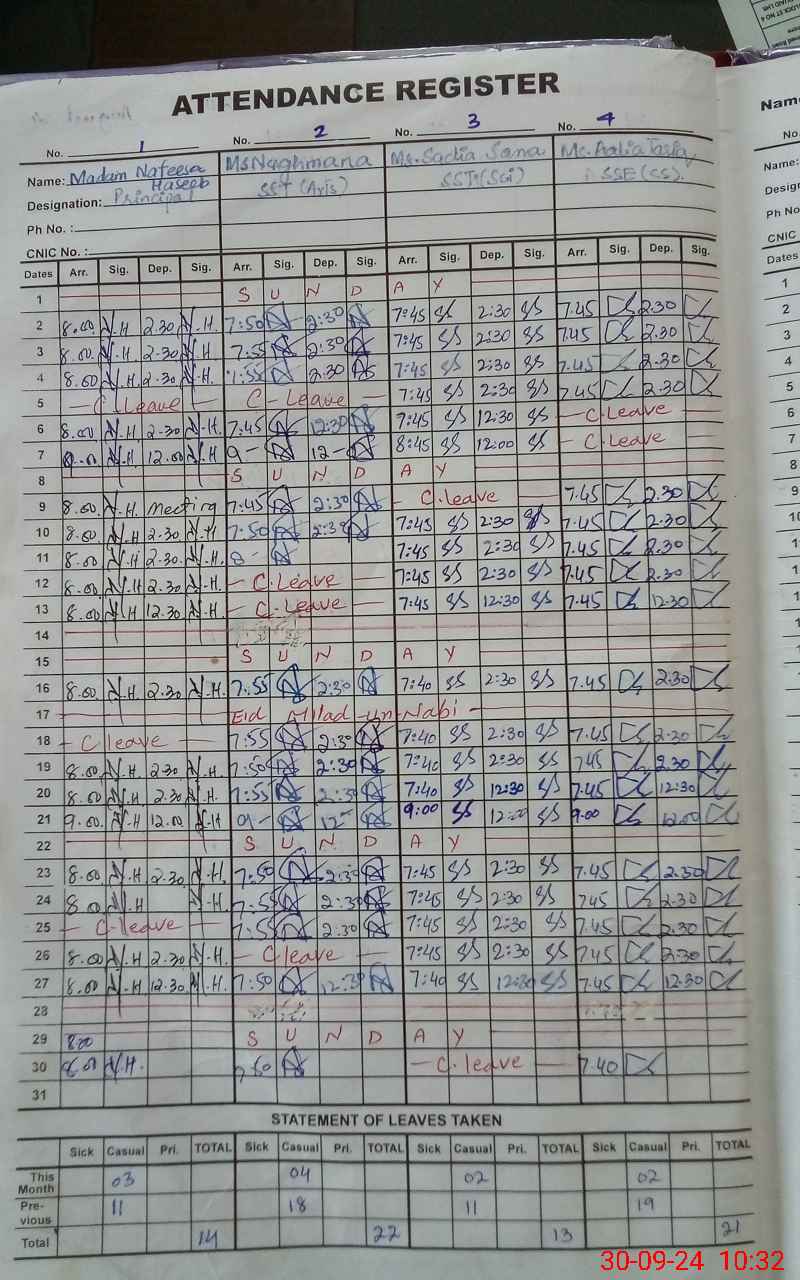 ATTENDANCE REGISTER
No. 1 No. 2 No. 3 No. 4
Name: Madam Nafeesa Haseeb Ms Naghmana Ms. Sadia Sana
Designation: Principal SST (Arts) SSE (CS).
Ph No. :
CNIC No. :
Dates Arr. Sig. Dep. Sig. Arr. Sig. Dep. Sig. Arr. Sig. Dep. Sig. Arr. Sig. Dep. Sig.
1 S U N D A Y
2 8.00 N.H 2.30 N.H. 7:50 2:30 7:45 SS 2:30 SS 7.45 2.30
3 8.00 N.H 2.30 N.H. 7:55 2:30 7:45 SS 2:30 SS 7.45 2.30
4 8.00 N.H. 2.30 N.H. 7:55 2:30 7:45 SS 2:30 SS 7.45 2.30
5 - C Leave - C - Leave - 7:45 SS 2:30 SS 7.45 2.30
6 8.00 N.H. 2.30 N.H 7:45 12:30 7:45 SS 12:30 SS - C.Leave -
7 9.00 N.H. 12.00 N.H 9 - 12 - 8:45 SS 12:00 SS - C.Leave -
8 S U N D A Y
9 8.00 N.H. Meeting 7:45 2:30 - C.leave - 7.45 2.30
10 8.00 N.H 2.30 N.H 7:50 2:30 7:45 SS 2:30 SS 7.45 2.30
11 8.00 N.H 2.30 N.H. 8 - 7:45 SS 2:30 SS 7.45 2.30
12 8.00 N.H 2.30 N.H. - C.Leave - 7:45 SS 2:30 SS 7.45 2.30
13 8.00 N.H 12.30 N.H. - C.Leave - 7:45 SS 12:30 SS 7.45 12.30
14
15 S U N D A Y
16 8.00 N.H. 2.30 N.H. 7:55 2:30 7:40 SS 2:30 SS 7.45 2.30
17 Eid Milad-un-Nabi -
18 - C leave - 7:55 2:30 7:40 SS 2:30 SS 7.45 2.30
19 8.00 N.H. 2.30 N.H. 7:50 2:30 7:40 SS 2:30 SS 7.45 2.30
20 8.00 N.H. 2.30 N.H. 7:55 2:30 7:40 SS 12:30 SS 7.45 12:30
21 9.00 N.H 12.00 N.H 09- 12- 9:00 SS 12:00 SS 9.00 12.00
22 S U N D A Y
23 8.00 N.H 2.30 N.H. 7:50 2:30 7:45 SS 2:30 SS 7.45 2.30
24 8.00 N.H N.H. 7:55 2:30 7:45 SS 2:30 SS 7.45 2.30
25 - C leave - 7:55 2:30 7:45 SS 2:30 SS 7.45 2.30
26 8.00 N.H 2.30 N.H - C leave - 7:45 SS 2:30 SS 7.45 2.30
27 8.00 N.H 12.30 N.H. 7:50 12:30 7:40 SS 12:30 SS 7.45 12.30
28
29 800 S U N D A Y
30 8.00 N.H. 7:50 - C.leave - 7.40
31
STATEMENT OF LEAVES TAKEN
Sick Casual Pri. TOTAL Sick Casual Pri. TOTAL Sick Casual Pri. TOTAL Sick Casual Pri. TOTAL
This Month 03 04 02 02
Pre-vious 11 18 11 19
Total 14 22 13 21
Name
No.
Name:
Ph No
CNIC
Dates
1
2
3
4
5
6
7
8
9
30-09-24 10:32